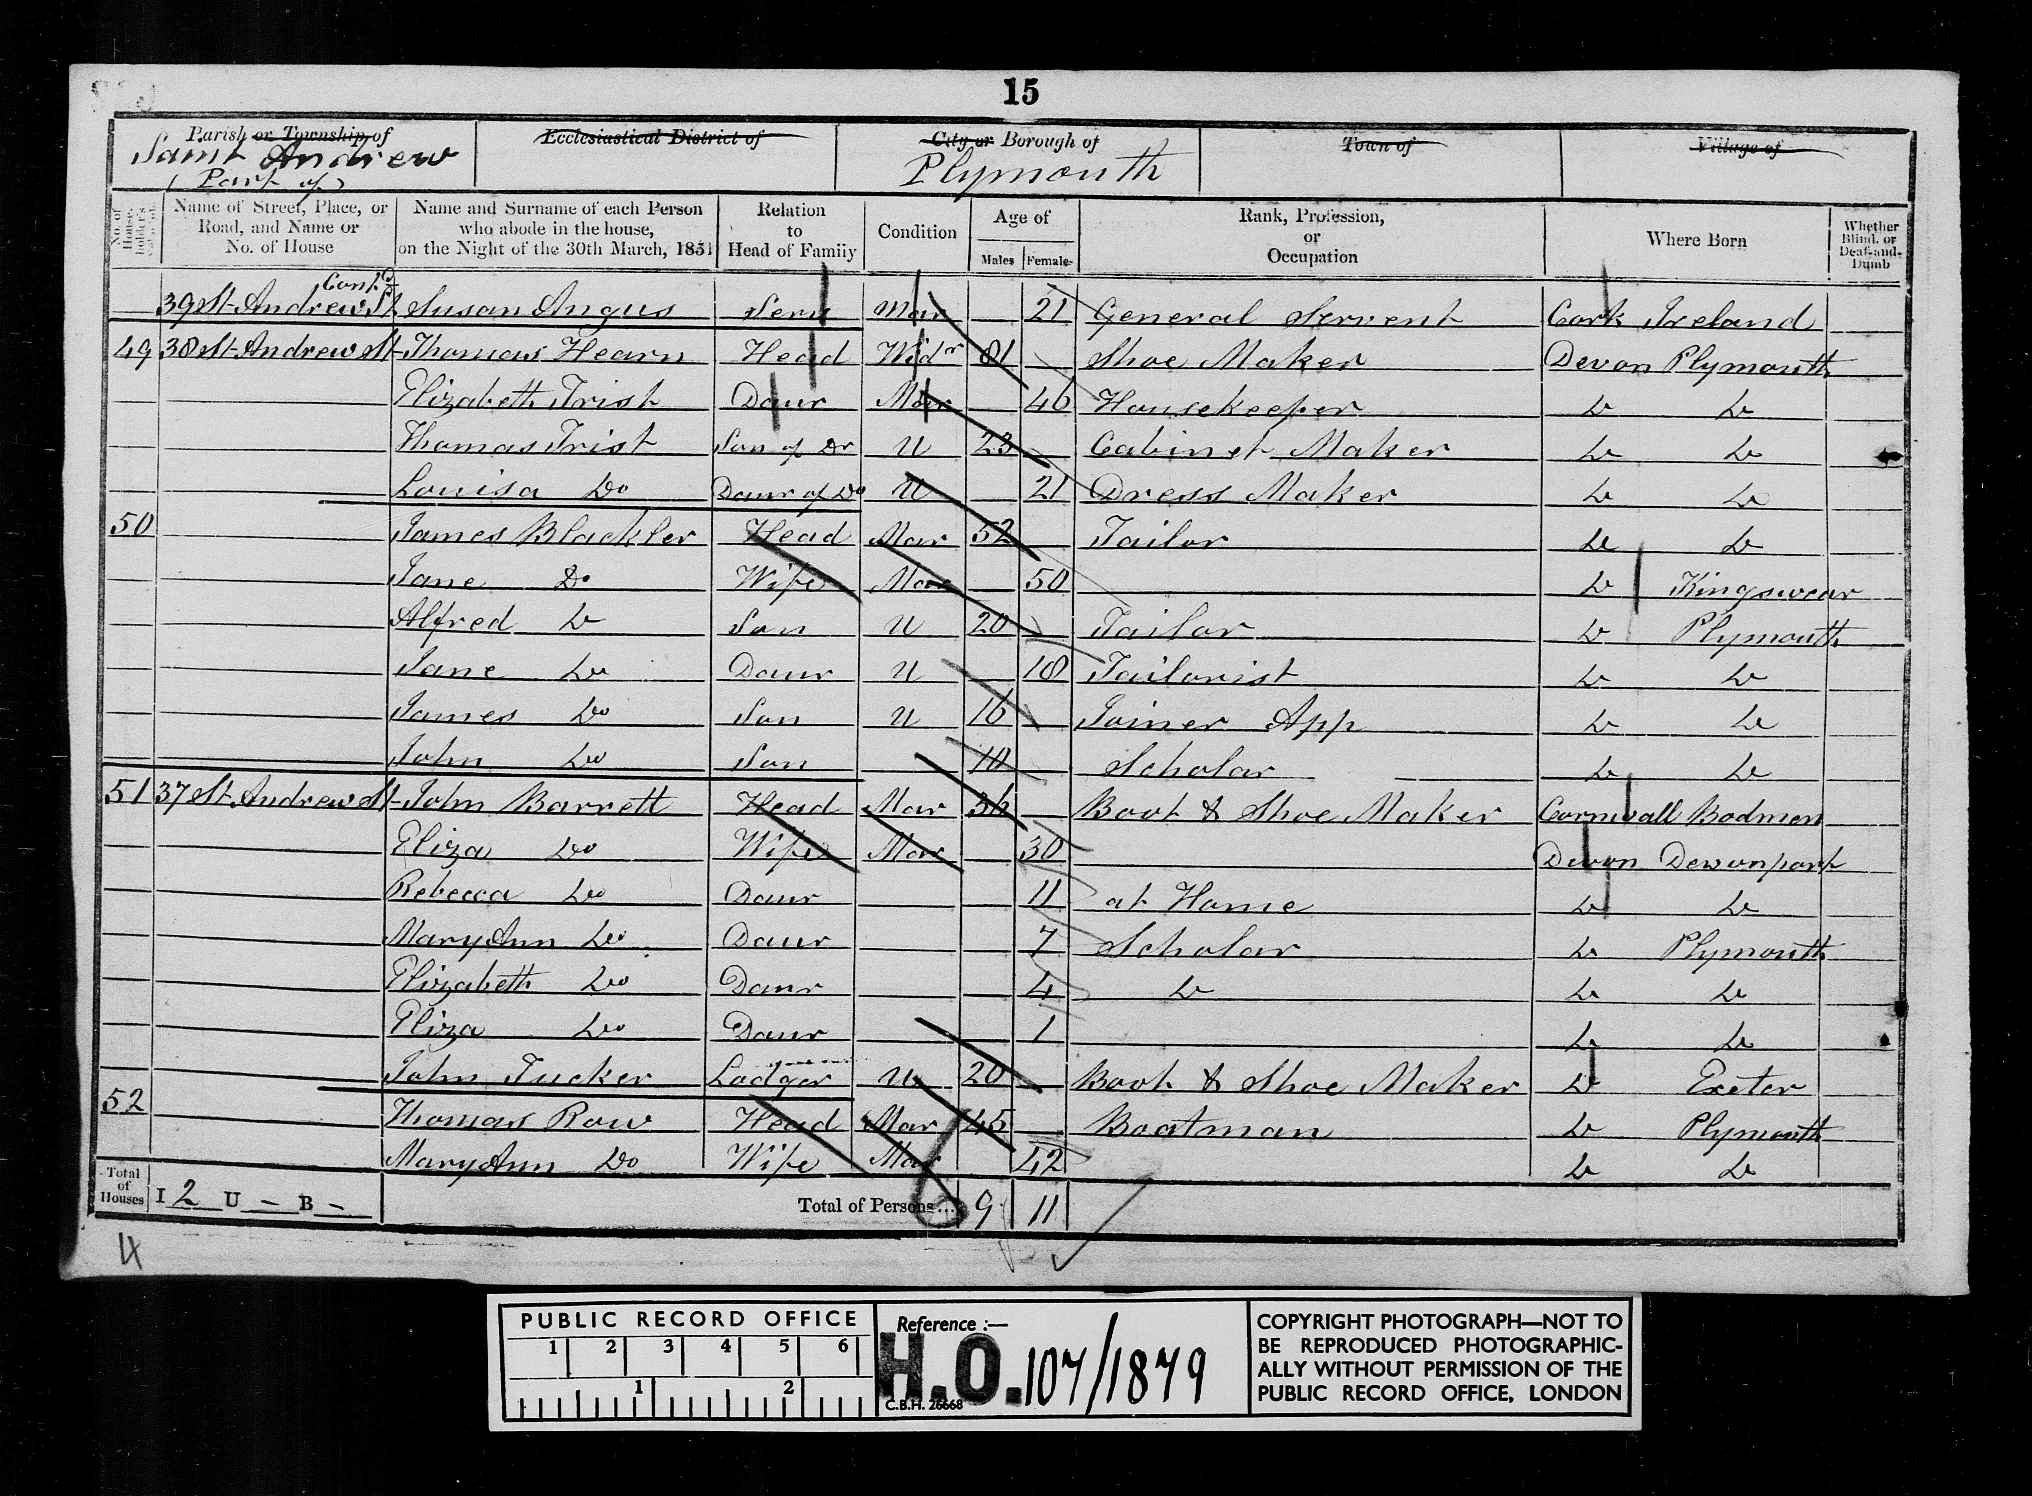 15
Parish or Township of Ecclesiastical District of City or Borough of Town of Village of
Saint Andrew Plymouth
(Part of)
No. of House-holder's Name of Street, Place, or Road, and Name or No. of House Name and Surname of each Person who abode in the house, on the Night of the 30th March, 1851 Relation to Head of Family Condition Age of Males Females Rank, Profession, or Occupation Where Born Whether Blind, or Deaf-and-Dumb
Contd
39 St. Andrew St Susan Angus Serv Mar 21 General Servent Cork Ireland
49 38 St. Andrew St Thomas Hearn Head Widr 81 Shoe Maker Devon Plymouth
Elizabeth Trist Daur Mar 46 Housekeeper Do Do
Thomas Trist Son of Dr U 23 Cabinet Maker Do Do
Louisa Do Daur of Do U 21 Dress Maker Do Do
50 James Blackler Head Mar 52 Tailor Do Do
Jane Do Wife Mar 50 Do Kingswear
Alfred Do Son U 20 Tailor Do Plymouth
Jane Do Daur U 18 Tailorist Do Do
James Do Son U 16 Joiner App Do Do
John Do Son 10 Scholar Do Do
51 37 St. Andrew St John Barrett Head Mar 36 Boot & Shoe Maker Cornwall Bodmon
Eliza Do Wife Mar 30 Devon Devonport
Rebecca Do Daur 11 at Home Do Do
Mary Ann Do Daur 7 Scholar Do Plymouth
Elizabeth Do Daur 4 Do Do Do
Eliza Do Daur 1 Do Do
John Tucker Lodger U 20 Boot & Shoe Maker Do Exeter
52 Thomas Row Head Mar 45 Boatman Do Plymouth
Mary Ann Do Wife Mar 42 Do Do
Total of Houses I 2 U - B - Total of Persons... 9 11
4
PUBLIC RECORD OFFICE
1 2 3 4 5 6
1 2
Reference :-
H.O. 107/1879
C.B.H. 26668
COPYRIGHT PHOTOGRAPH—NOT TO
BE REPRODUCED PHOTOGRAPHIC-
ALLY WITHOUT PERMISSION OF THE
PUBLIC RECORD OFFICE, LONDON